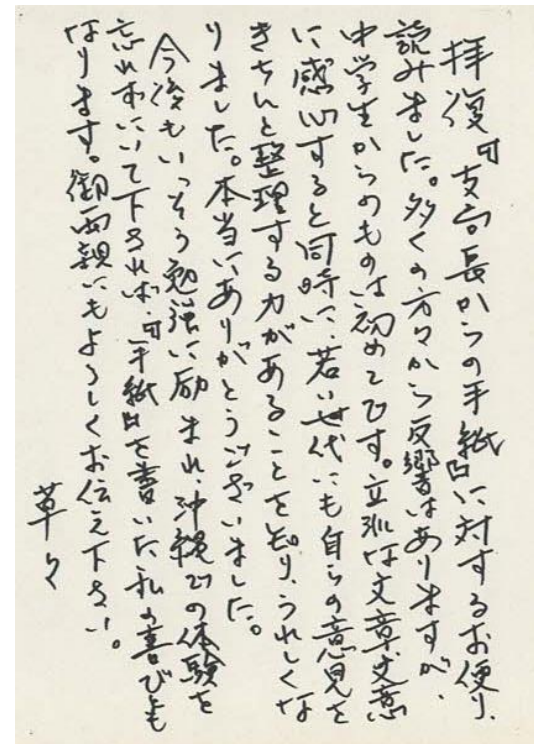 拝復『支店長からの手紙』に対するお便り、
読みました。多くの方々から反響はありますが、
中学生からのものは初めてです。立派な文章、文意
に感心すると同時に、若い世代にも自らの意見を
きちんと整理する力があることを知り、うれしくな
りました。本当にありがとうございました。
今後もいっそう勉強に励まれ、沖縄での体験を
忘れずにいて下されば、『手紙』を書いた私の喜びとも
なります。御両親にもよろしくお伝え下さい。
草々